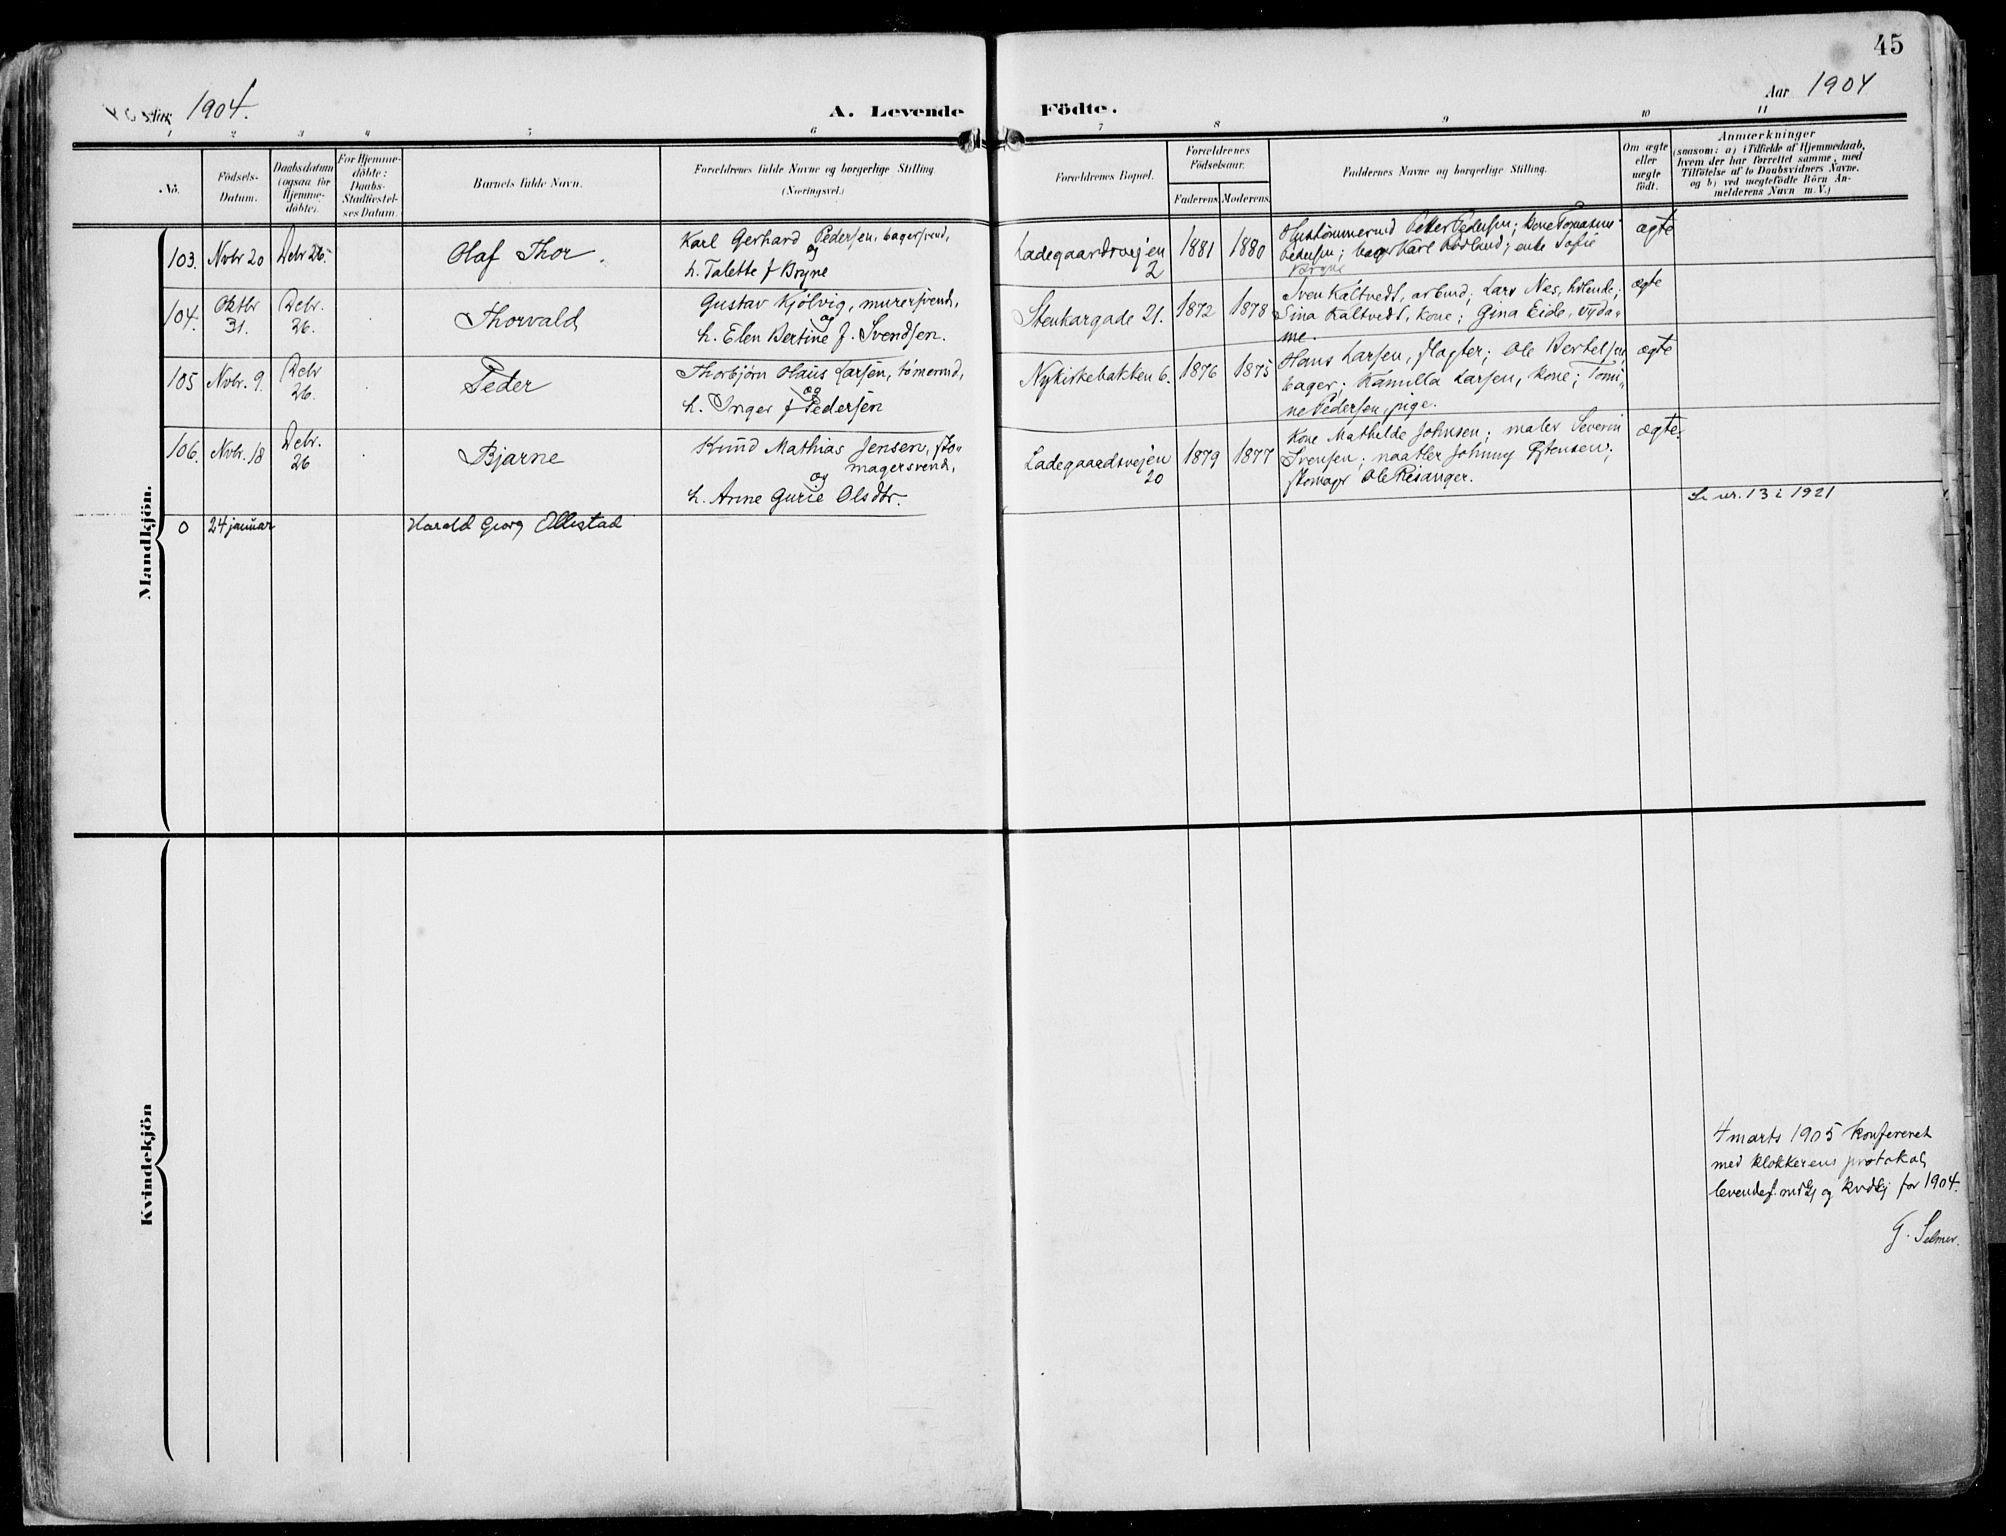 45
1904.
A. Levende Födte.
Aar 1904
1 2 3 4 5 6 7 8 9 10 11
No.
Födsels-Datum.
Daabsdatum (ogsaa for Hjemme-döbte).
For Hjemme-döbte: Daabs-Stadfæstel-ses Datum.
Barnets fulde Navn.
Forældrenes fulde Navne og borgerlige Stilling. (Næringsvei.)
Forældrenes Bopæl.
Forældrenes Födselsaar.
Faderens. Moderens.
Faddernes Navne og borgerlige Stilling.
Om ægte eller uægte födt.
Anmærkninger
(saasom: a) i Tilfælde af Hjemmedaab, hvem der har forrettet samme, med Tilföielse af to Daabsvidners Navne. og b) ved uægtefödte Börn An-melderens Navn m. V.)
Mandkjön.
103. Nvbr 20 Debr 26. Olaf Thor.
Karl Gerhard Pedersen, bagersvend,
og
h. Talette f Bryne
Ladegaardsvejen 2 1881 1880
Petter Pedersen; kone
Pedersen; bager Karl Rødland; enke Sofie
Bryne
ægte
104. Oktbr 31. Debr. 26. Thorvald
Gustav Kjølvig, murersvend,
og
h. Elen Bertine f. Svendsen.
Stenkargade 21. 1872 1878
Sven Kaltvedt, arbmd; Lars Nes,
Sina Kaltvedt, kone; Gina Eide, syda-
me.
ægte
105 Nvbr. 9. Debr 26. Peder
Thorbjørn Olaus Larsen, tømermd,
og
h. Inger f Pedersen
Nykirkebakken 6. 1876 1875
Hans Larsen, slagter; Ole Bertelsen,
bager; Kamilla Larsen, kone; Tomi-
ne Pedersen, pige.
ægte
106. Nvbr. 18 Debr. 26 Bjarne
Knud Mathias Jensen, sko-
magersvend,
og
h. Anne Gurie Olsdtr.
Ladegaardsvejen 20 1879 1877
Kone Mathilde Johnsen; maler Severin
Svensen; Johnny
skomagr Ole Risanger.
ægte.
0 24 januar Harald Georg Ollestad
Se nr. 13 i 1921
Kvindekjön
4 marts 1905 konfereret
med klokkerens protokol,
levendef. mdkj og kvdkj for 1904.
G. Selmer.